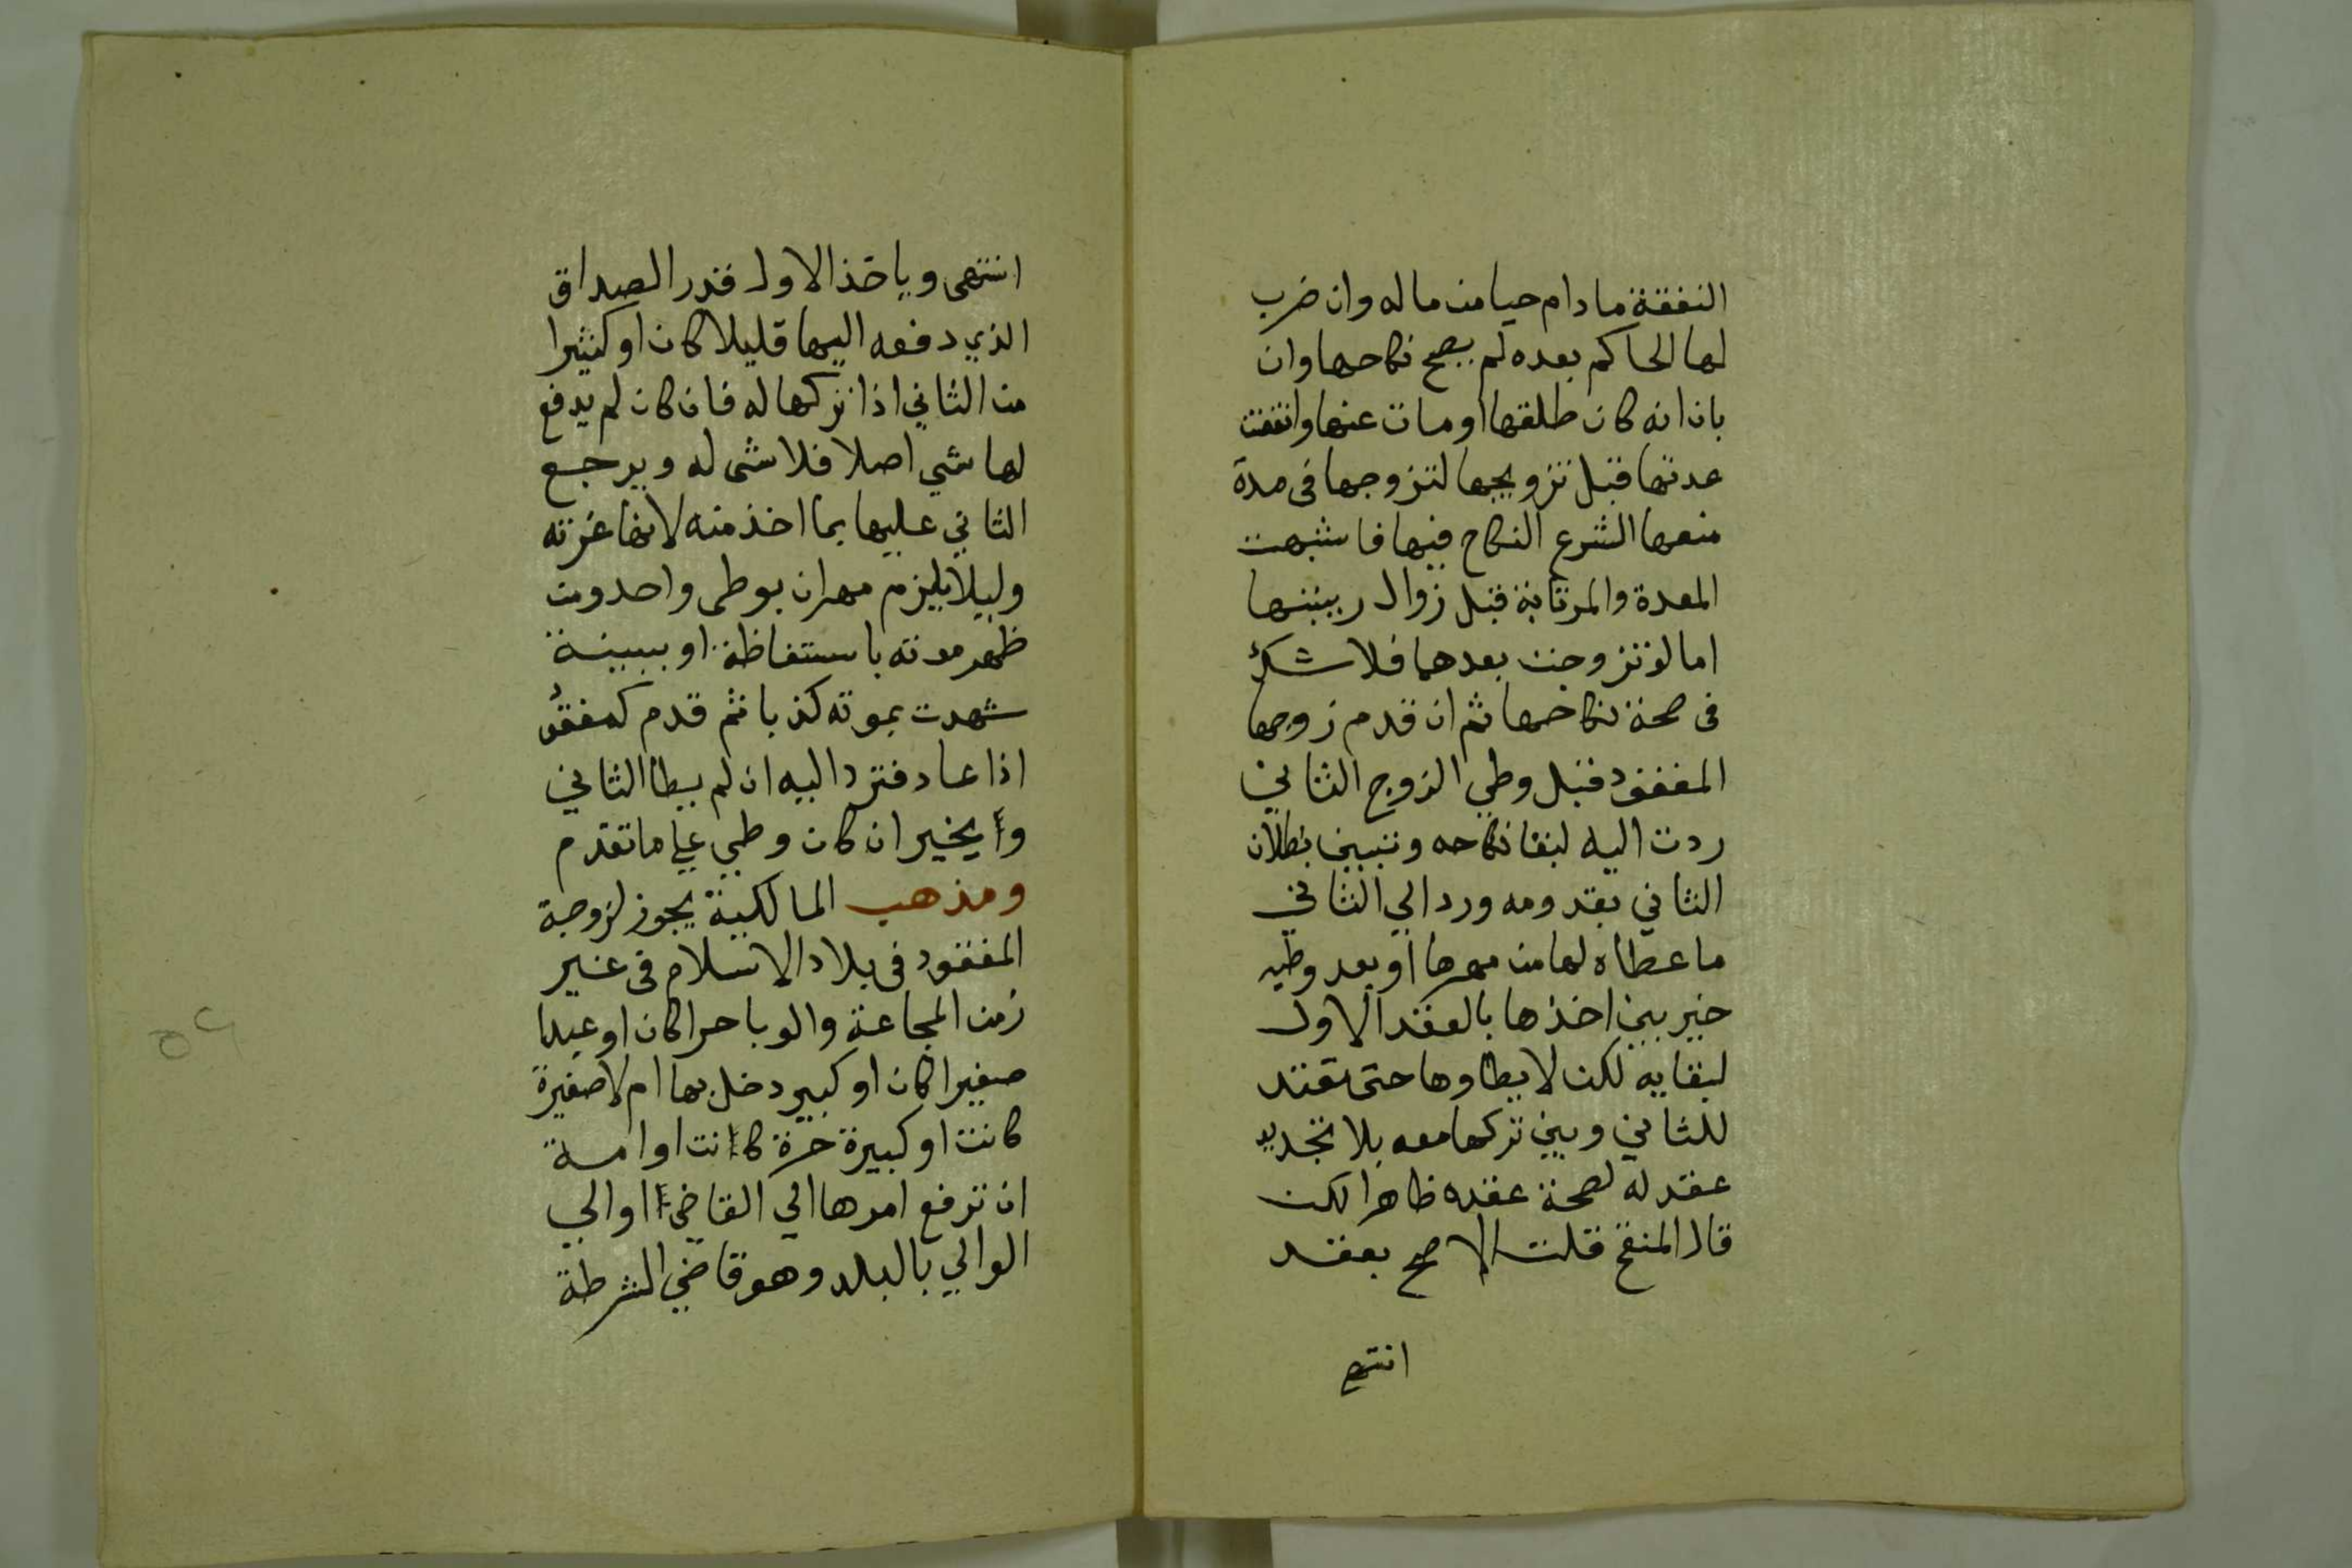 النفقة مادام حيا من ماله وان ضرب
لها الحاكم بعده لم يصح نكاحها وان
بان انه كان طلقها او مات عنها وانقضت
عدتها قبل تزويجها لتزوجها فى مدة
منعها الشرع النكاح فيها فاشبهت
المعدة والمرتابة قبل زوال ريبتها
اما لو تزوجت بعدهما فلا شك
فى صحة نكاحها ثم ان قدم زوجها
المفقود قبل وطي الزوج الثاني
ردت اليه لبقا نكاحه وتبين بطلان
الثاني بقدومه ورد الي الثاني
ما عطاه لها من مهرها او بعد وطيه
خير بين اخذها بالعقد الاول
لبقايه لكن لا يطاوها حتى تعتد
للثاني وبين تركها معه بلا تجديد
عقد له لصحة عقده ظاهرا لكن
قال المنقح قلت الاصح بعقد
انتهى
انتهى وياخذ الاول قدر الصداق
الذي دفعه اليها قليلا كان او كثيرا
من الثاني اذا تركها له فان كان لم يدفع
لها شي اصلا فلا شى له ويرجع
الثاني عليها بما اخذ منه لانها غرته
وليلا يلزم مهران بوطى واحد ومن
ظهر موته باستفاظة او ببينة
شهدت بموته كذبا ثم قدم كمفقود
اذا عاد فترد اليه ان لم يطا الثاني
و يخير ان كان وطي علي ما تقدم
ومذهب المالكية يجوز لزوجة
المفقود فى بلاد الاسلام فى غير
زمن المجاعة والوبا حرا كان او عبدا
صغيرا كان او كبير دخل بها ام لا صغيرة
كانت او كبيرة حرة كانت او امة
ان ترفع امرها الي القاضي او الي
الوالي بالبلد وهو قاضي الشرطة
٥٢